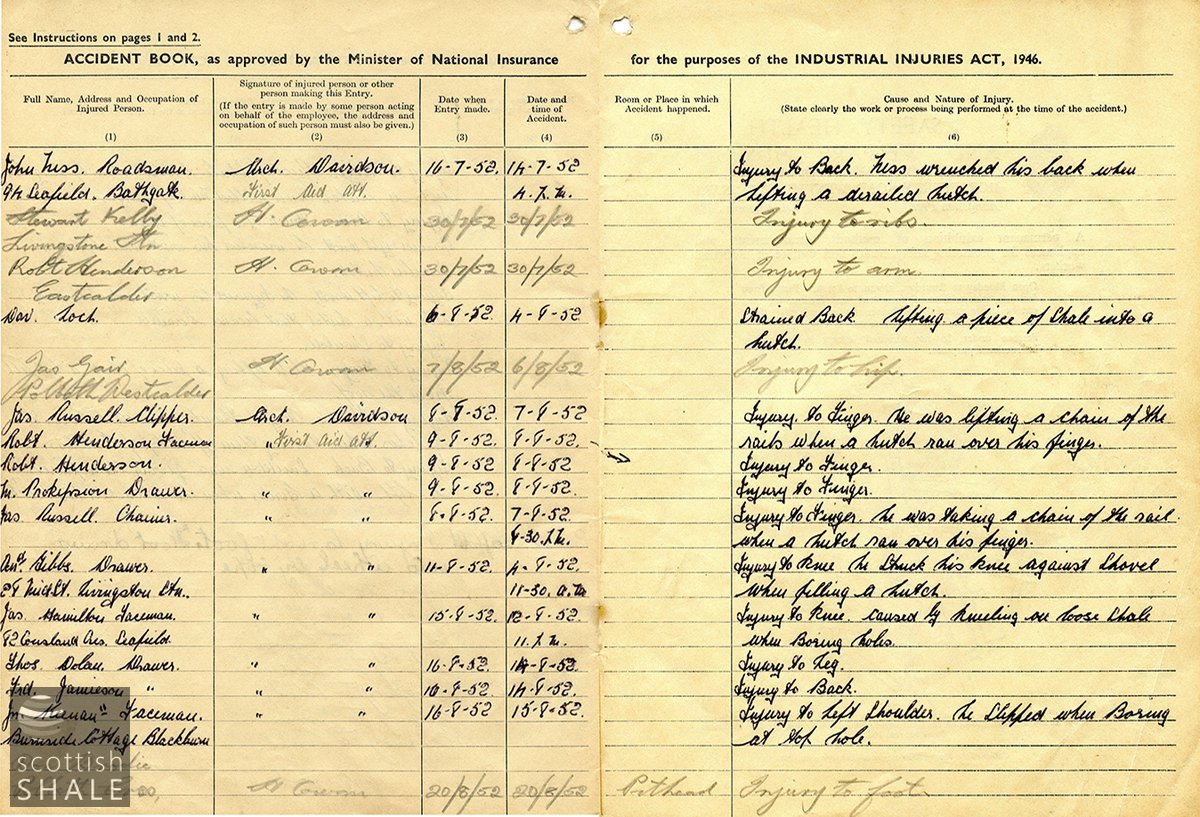 See Instructions on pages 1 and 2.
ACCIDENT BOOK, as approved by the Minister of National Insurance for the purposes of the INDUSTRIAL INJURIES ACT, 1946.
Full Name, Address and Occupation of Injured Person.
(1)
Signature of injured person or other person making this Entry.
(If the entry is made by some person acting on behalf of the employee, the address and occupation of such person must also be given.)
(2)
Date when Entry made.
(3)
Date and time of Accident.
(4)
Room or Place in which Accident happened.
(5)
Cause and Nature of Injury.
(State clearly the work or process being performed at the time of the accident.)
(6)
John Ness. Roadsman. Arch. Davidson. 16-7-52. 14-7-52 Injury to Back. Ness wrenched his back when
94 Seafield. Bathgate. First Aid Att. 4. P.M. lifting a derailed hutch.
Stewart Kelly H. Cowan 30/7/52 30/7/52 Injury to ribs.
Livingstone Stn
Robt Henderson H. Cowan 30/7/52 30/7/52 Injury to arm.
Eastcalder
Dav. Loch. 6-8-52. 4-8-52. Strained Back lifting a piece of Shale into a
hutch.
Jas Gair H. Cowan 7/8/52 6/8/52 Injury to hip.
Westcalder
Jas. Russell. Clipper. Arch. Davidson 8-8-52. 7-8-52 Injury to Finger. He was lifting a chain of the
Robt. Henderson Faceman " First aid att 9-8-52. 8-8-52. rails when a hutch ran over his finger.
Robt. Henderson. 9-8-52 8-8-52 Injury to Finger.
Drawer. " " 9-8-52. 8-8-52. Injury to Finger.
Jas. Russell. Chainer. " " 8-8-52. 7-8-52. Injury to Finger. he was taking a chain of the rail
8-30. P.M. when a hutch ran over his finger.
Gibbs. Drawer. " " 11-8-52 4-8-52. Injury to knee he struck his knee against Shovel
Mid St. Livingston Stn. 11-30. a.m when filling a hutch.
Jas. Hamilton Faceman. " " 15-8-52. 12-8-52. Injury to knee. caused by kneeling on loose Shale
82 Cousland Cres. Seafield. 11. P.M. when Boring holes.
Thos. Dolan. Drawer. " " 16-8-52. 14-8-52. Injury to Leg.
Frd. Jamieson " " " 16-8-52 14-8-52. Injury to Back.
Keenan Faceman. " " 16-8-52 15-8-52. Injury to Left Shoulder. he slipped when Boring
Burnside Cottage Blackburn at top hole.
H. Cowan 20/8/52 20/8/52 Pithead Injury to foot.
scottish
SHALE